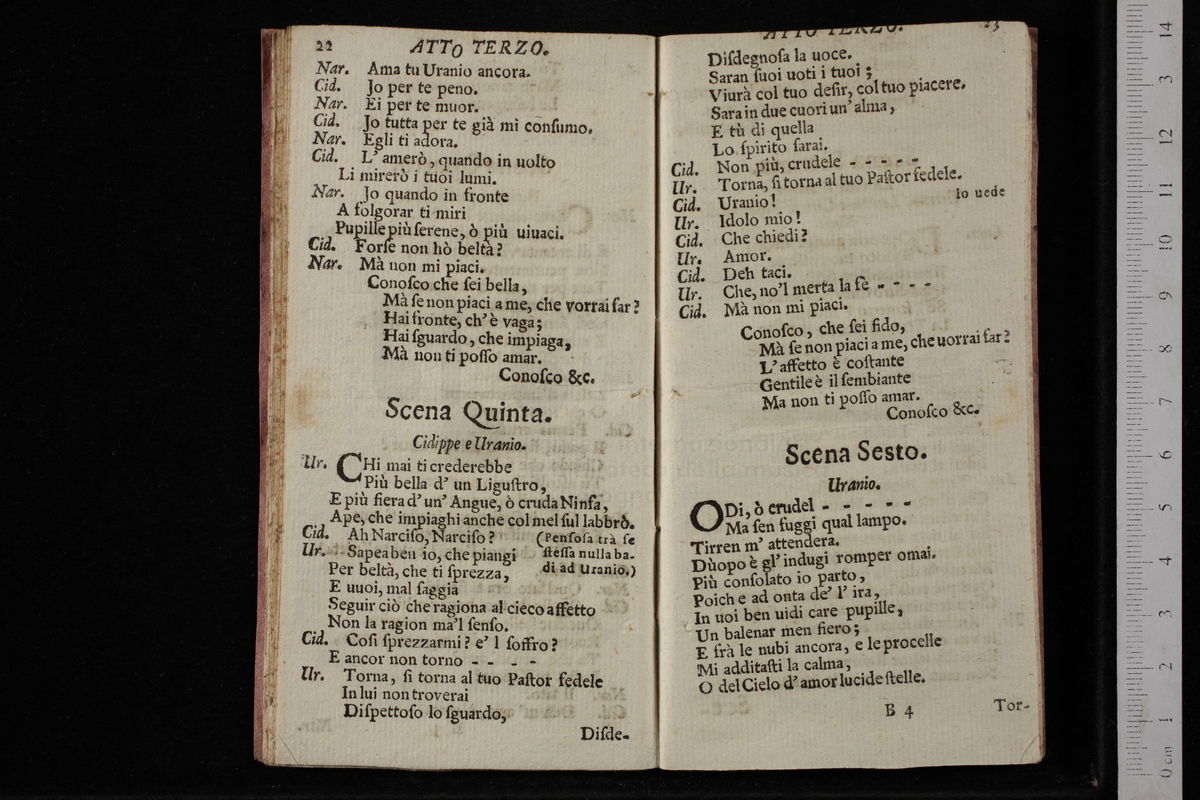 22 ATTO TERZO.
Nar. Ama tu Uranio ancora.
Cid. Jo per te peno.
Nar. Ei per te muor.
Cid. Jo tutta per te già mi conſumo.
Nar. Egli ti adora.
Cid. L' amerò, quando in uolto
Li mirerò i tuoi lumi.
Nar. Jo quando in fronte
A folgorar ti miri
Pupille più ſerene, ò più uiuaci.
Cid. Forſe non hò beltà?
Nar. Mà non mi piaci.
Conoſco che ſei bella,
Mà ſe non piaci a me, che vorrai far?
Hai fronte, ch' è vaga;
Hai ſguardo, che impiaga,
Mà non ti poſſo amar.
Conoſco &c.
Scena Quinta.
Cidippe e Uranio.
Ur. CHi mai ti crederebbe
Più bella d' un Liguſtro,
E più fiera d' un' Angue, ò cruda Ninfa,
Ape, che impiaghi anche col mel ſul labbrò.
Cid. Ah Narciſo, Narciſo? (Penſoſa trà ſe
Ur. Sapea ben io, che piangi ſteſſa nulla ba-
Per beltà, che ti ſprezza, di ad Uranio.)
E uuoi, mal ſaggia
Seguir ciò che ragiona al cieco affetto
Non la ragion ma'l ſenſo.
Cid. Coſi ſprezzarmi? e' l ſoffro?
E ancor non torno - - - -
Ur. Torna, ſi torna al tuo Paſtor fedele
In lui non troverai
Diſpettoſo lo ſguardo,
Diſde-
ATTO TERZO. 23
Diſdegnoſa la uoce.
Saran ſuoi uoti i tuoi;
Viurà col tuo deſir, col tuo piacere.
Sara in due cuori un' alma,
E tù di quella
Lo ſpirito ſarai.
Cid. Non più, crudele - - - - -
Ur. Torna, ſi torna al tuo Paſtor fedele.
Cid. Uranio! lo uede
Ur. Idolo mio!
Cid. Che chiedi?
Ur. Amor.
Cid. Deh taci.
Ur. Che, no'l merta la fè - - - -
Cid. Mà non mi piaci.
Conoſco, che ſei fido,
Mà ſe non piaci a me, che uorrai far?
L' affetto è coſtante
Gentile è il ſembiante
Ma non ti poſſo amar.
Conoſco &c.
Scena Sesto.
Uranio.
ODi, ò crudel - - - - -
Ma ſen fuggi qual lampo.
Tirren m' attendera.
Dùopo è gl' indugi romper omai.
Più conſolato io parto,
Poich e ad onta de' l' ira,
In uoi ben uidi care pupille,
Un balenar men fiero;
E frà le nubi ancora, e le procelle
Mi additaſti la calma,
O del Cielo d' amor lucide ſtelle.
B 4 Tor-
0 cm 1 2 3 4 5 6 7 8 9 10 11 12 13 14